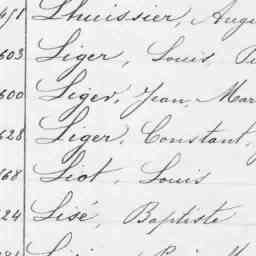 Lhuissier, Augu
603 Liger, Louis
600 Liger, Jean, Mar
628 Liger, Constant,
168 Liot, Louis
224 Lisé, Baptiste